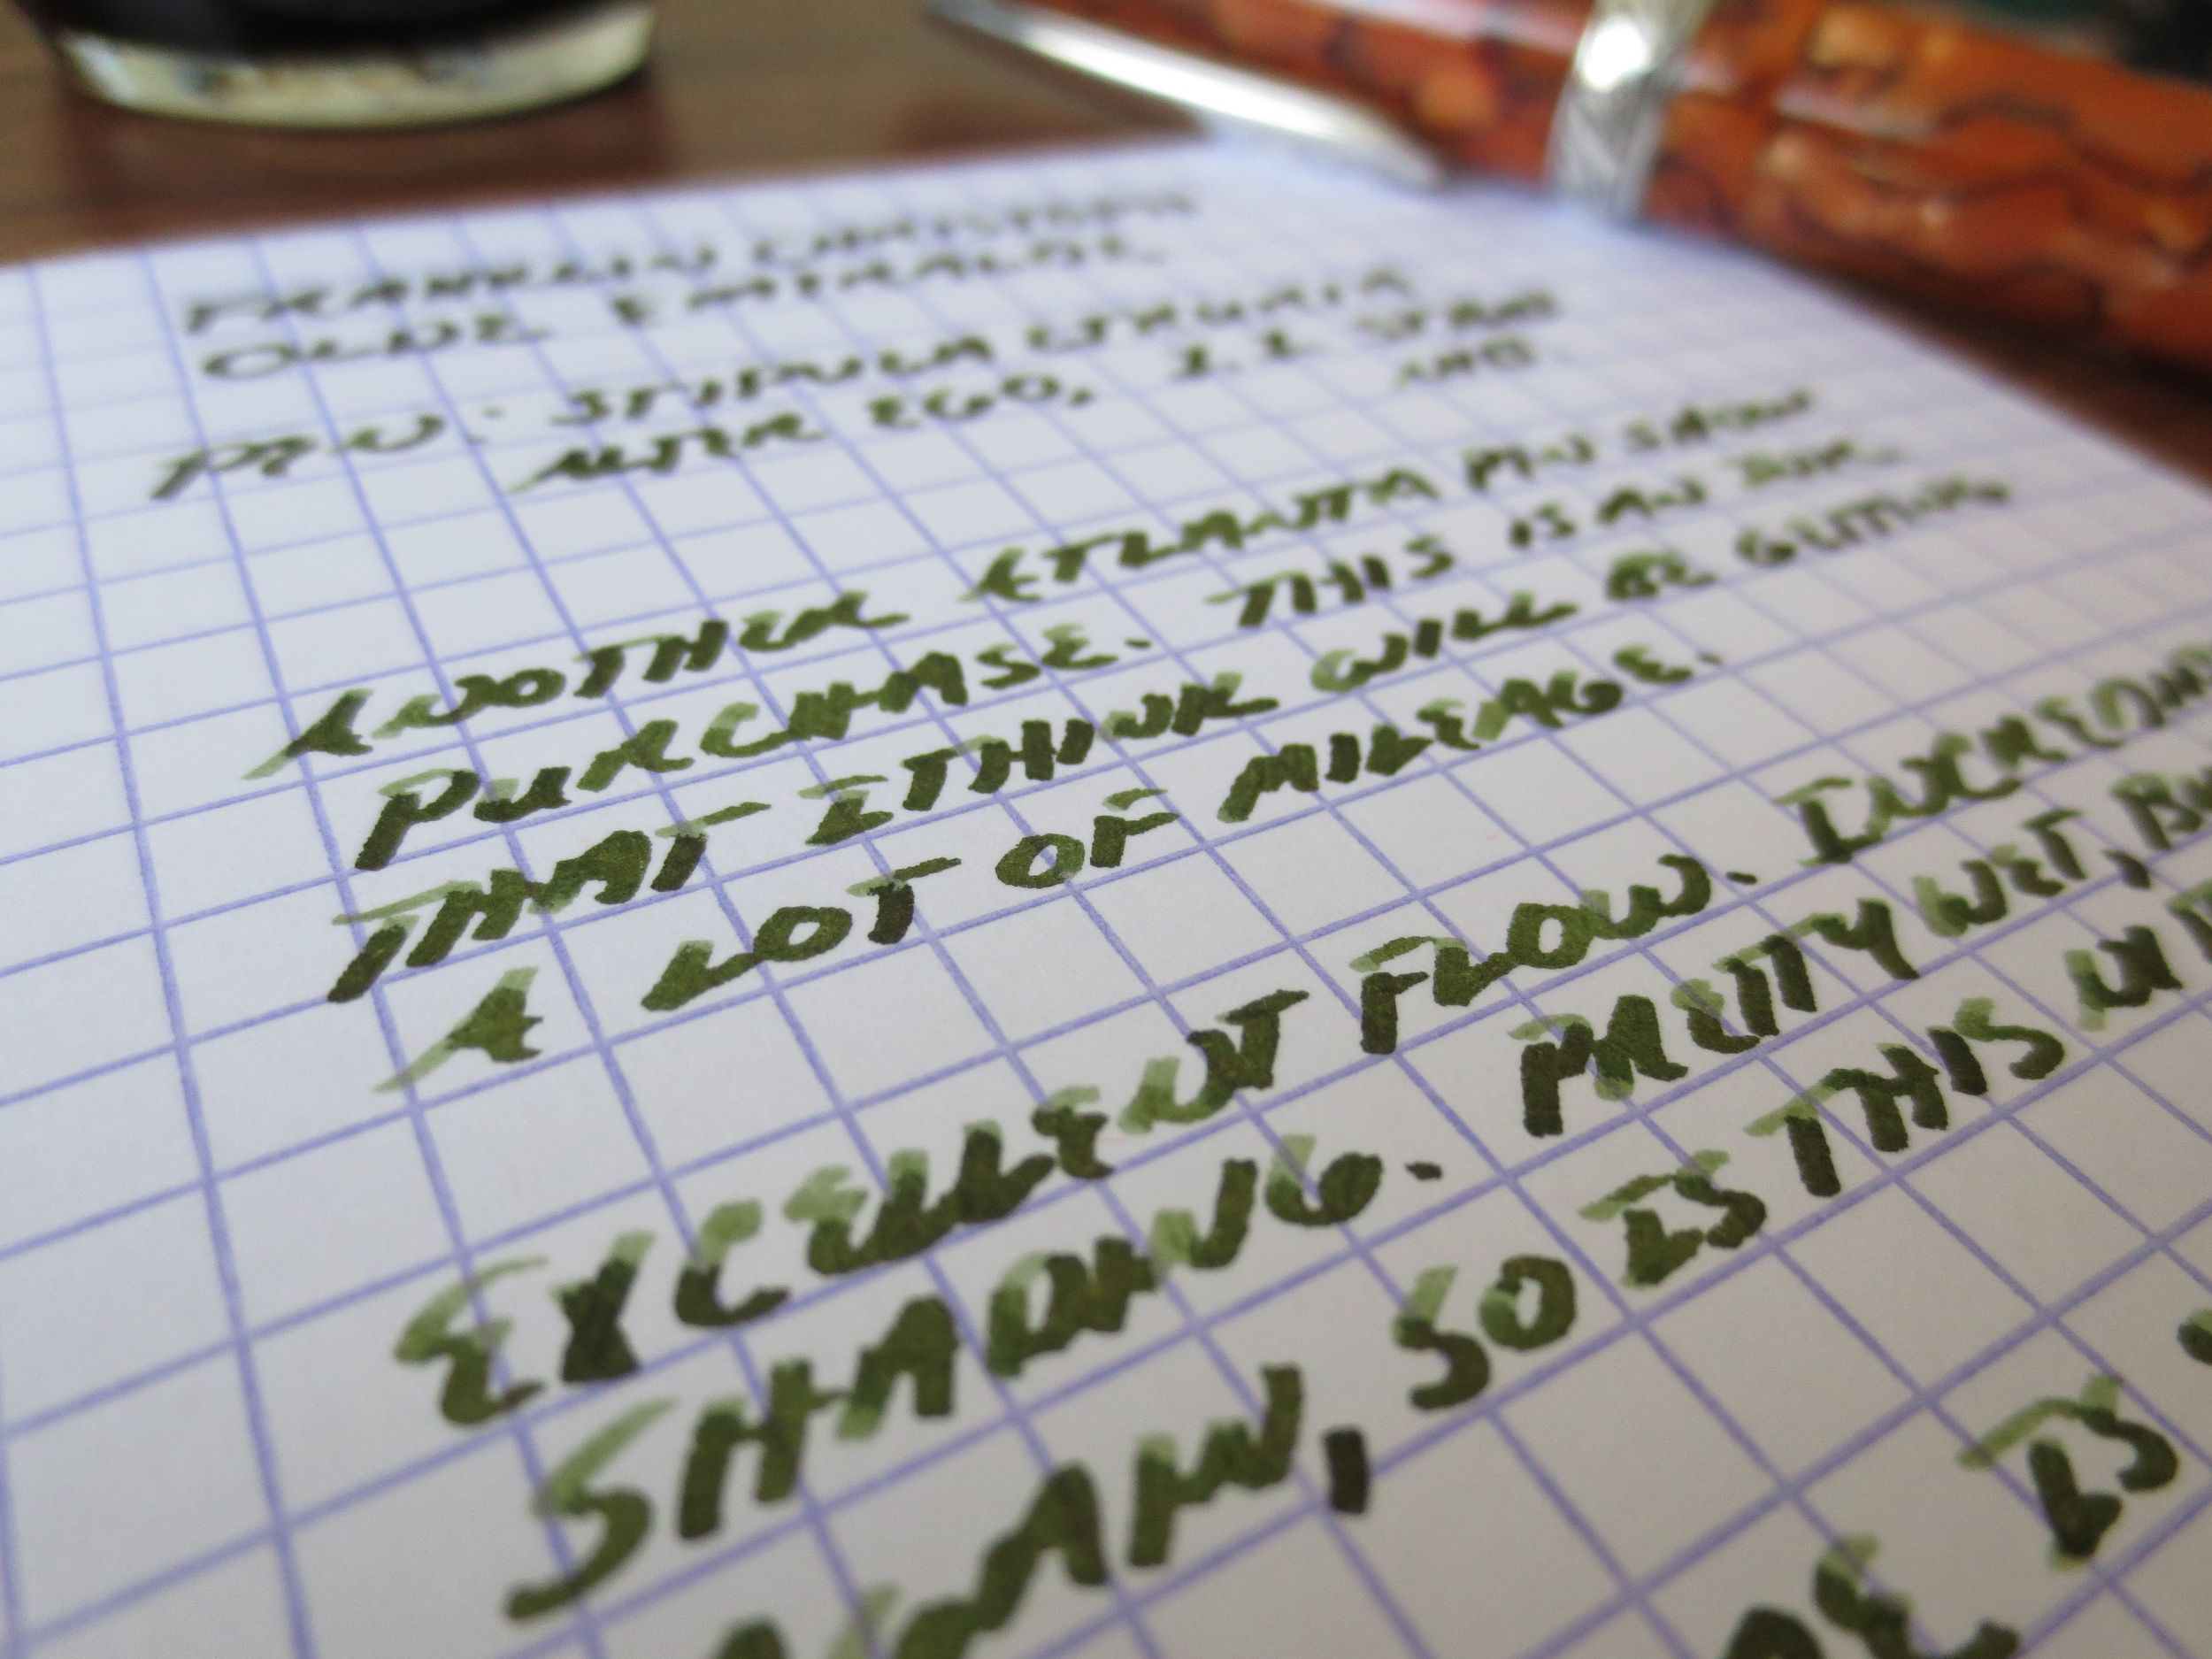 FRANKLIN CHRISTOPH
OLDE EMERALDE
PEN: STIPULA ETRURIA
ALTER EGO, 1.1 STUB
ANOTHER ATLANTA PEN SHOW
PURCHASE. THIS IS AN INK
THAT I THINK WILL BE GETTING
A LOT OF MILEAGE.
EXCELLENT FLOW. INCREDIBLE
SHADING. PRETTY WET, BUT
MAN, SO IS THIS
IS